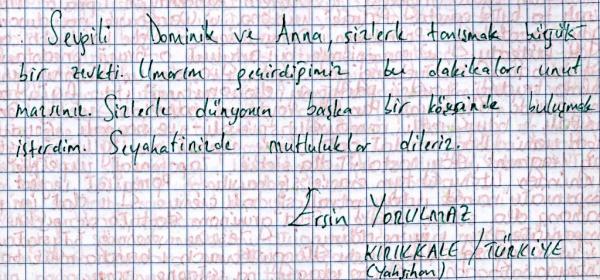 Sevgili Dominik ve Anna, sizlerle tanışmak büyük
bir zevkti. Umarım geçirdiğimiz bu dakikaları unut
mazsınız. Sizlerle dünyanın başka bir köşesinde buluşmak
isterdim. Seyahatinizde mutluluklar dileriz.
Ersin YORULMAZ
KIRIKKALE / TÜRKİYE
(Yahşihan)